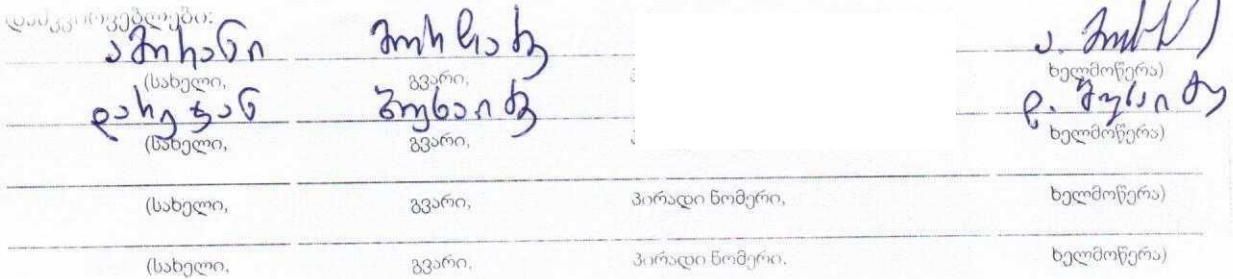 დამკვირვებლები:
ამირანი
(სახელი, გვარი, ხელმოწერა)
დარეჯან
(სახელი, გვარი, ხელმოწერა)
(სახელი, გვარი, პირადი ნომერი, ხელმოწერა)
(სახელი, გვარი, პირადი ნომერი, ხელმოწერა)